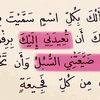 أَلُكَ بِكُلِّ اسْمٍ سَمَّيْتَ
كَ أَنْ تُعِيدَنِي إِلَيْكَ بِرِفْقٍ
ضَيَّعَتْنِي السُّبُلُ وَأَنْ تَ
مِنْ كُلِّ